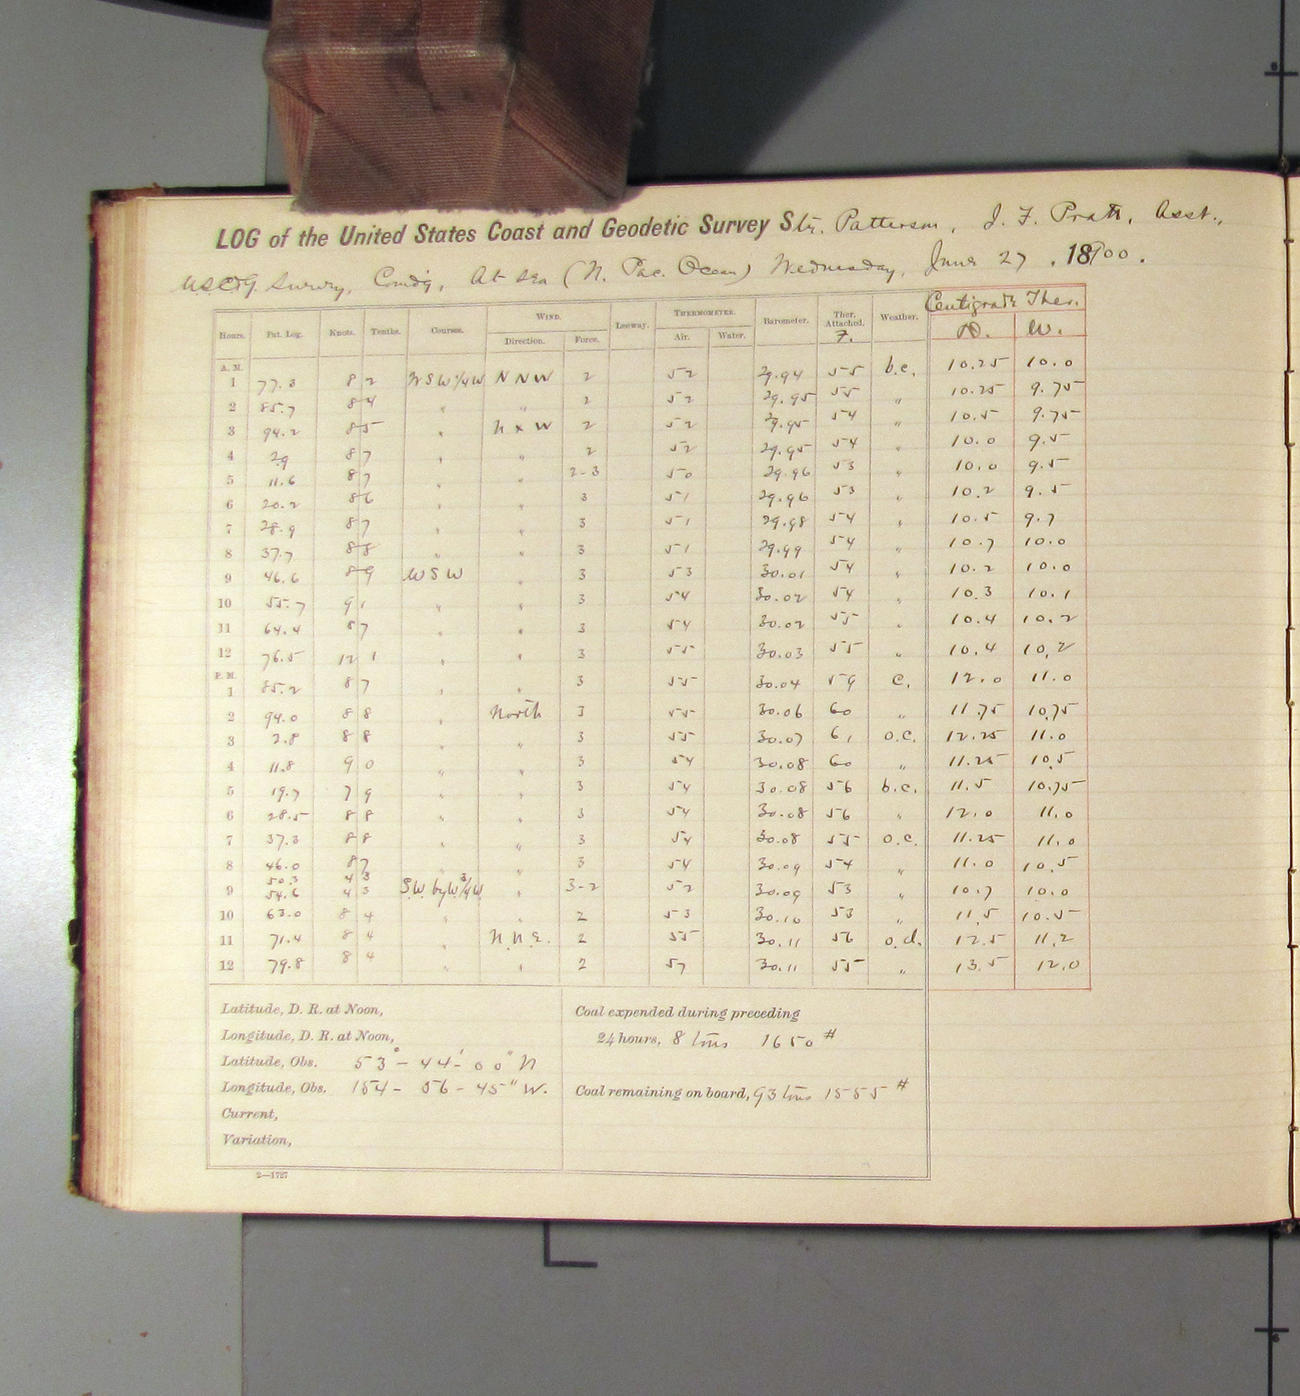 LOG of the United States Coast and Geodetic Survey Str. Patterson, J. F. Pratt, Asst.,
U.S.C.&G. Survey, Comdg, At sea (N. Pac. Ocean) Wednesday, June 27, 1900.
Centigrade Ther.
Hours. Pat. Log. Knots. Tenths. Courses. WIND. Leeway. THERMOMETER. Barometer. Ther. Attached. F. Weather. D. W.
Direction. Force. Air. Water.
A. M.
1 77.3 8 2 WSW¼W NNW 2 52 29.94 55 b.c. 10.25 10.0
2 85.7 8 4 " " 2 52 29.95 55 " 10.25 9.75
3 94.2 8 5 " N x W 2 52 29.95 54 " 10.5 9.75
4 2.9 8 7 " " 2 52 29.95 54 " 10.0 9.5
5 11.6 8 7 " " 2-3 50 29.96 53 " 10.0 9.5
6 20.2 8 6 " " 3 51 29.96 53 " 10.2 9.5
7 28.9 8 7 " " 3 51 29.98 54 " 10.5 9.7
8 37.7 8 8 " " 3 51 29.99 54 " 10.7 10.0
9 46.6 8 9 WSW " 3 53 30.01 54 " 10.2 10.0
10 55.7 9 1 " " 3 54 30.02 54 " 10.3 10.1
11 64.4 8 7 " " 3 54 30.02 55 " 10.4 10.2
12 76.5 12 1 " " 3 55 30.03 55 " 10.4 10.2
P. M.
1 85.2 8 7 " " 3 55 30.04 59 c. 12.0 11.0
2 94.0 8 8 " North 3 55 30.06 60 " 11.75 10.75
3 2.8 8 8 " " 3 55 30.07 61 o.c. 12.25 11.0
4 11.8 9 0 " " 3 54 30.08 60 " 11.25 10.5
5 19.7 7 9 " " 3 54 30.08 56 b.c. 11.5 10.75
6 28.5 8 8 " " 3 54 30.08 56 " 12.0 11.0
7 37.3 8 8 " " 3 54 30.08 55 o.c. 11.25 11.0
8 46.0 8 7 " " 3 54 30.09 54 " 11.0 10.5
50.3 4 3
9 54.6 4 3 S.W. by W.¾W. " 3-2 52 30.09 53 " 10.7 10.0
10 63.0 8 4 " " 2 53 30.10 53 " 11.5 10.5
11 71.4 8 4 " N.N.E. 2 55 30.11 56 o.d. 12.5 11.2
12 79.8 8 4 " " 2 57 30.11 55 " 13.5 12.0
Latitude, D. R. at Noon,
Longitude, D. R. at Noon,
Latitude, Obs. 53° - 44' - 00" N
Longitude, Obs. 154 - 56 - 45" W.
Current,
Variation,
Coal expended during preceding
24 hours, 8 tons 1650 #
Coal remaining on board, 93 tons 1555 #
2—1727